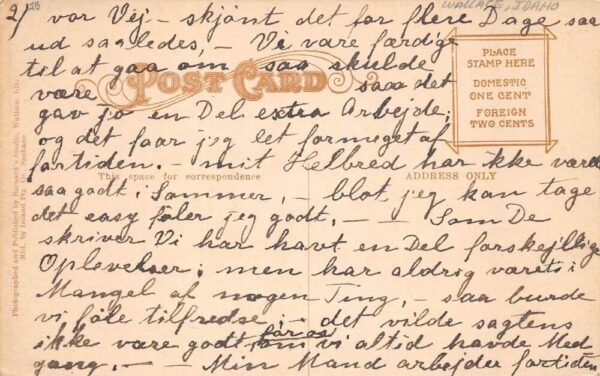 2/ vor Vej - skjønt det for flere Dage saa
WALLACE, IDAHO
ud saaledes, - Vi vare færdige
til at gaa om saa skulde
være saa det
POST CARD
PLACE
STAMP HERE
DOMESTIC
ONE CENT
FOREIGN
TWO CENTS
gav jo en Del extra Arbejde,
og det faar jeg let formeget af
fortiden. - mit Helbred har ikke været
This space for correspondence
ADDRESS ONLY
saa godt i Sommer, - blot jeg kan tage
det easy føler jeg godt, - - Som De
skriver Vi har havt en Del forskjellige
Oplevelser; men har aldrig været i
Mangel af nogen Ting, - saa burde
vi føle tilfredse; - det vilde sagtens
ikke være godt for os om vi altid havde Med
gang. - - Min Mand arbejder fortiden
Photographed and Published by Barnard's Studio, Wallace, Ida.
Mfd. by Inland Ptg Spokane